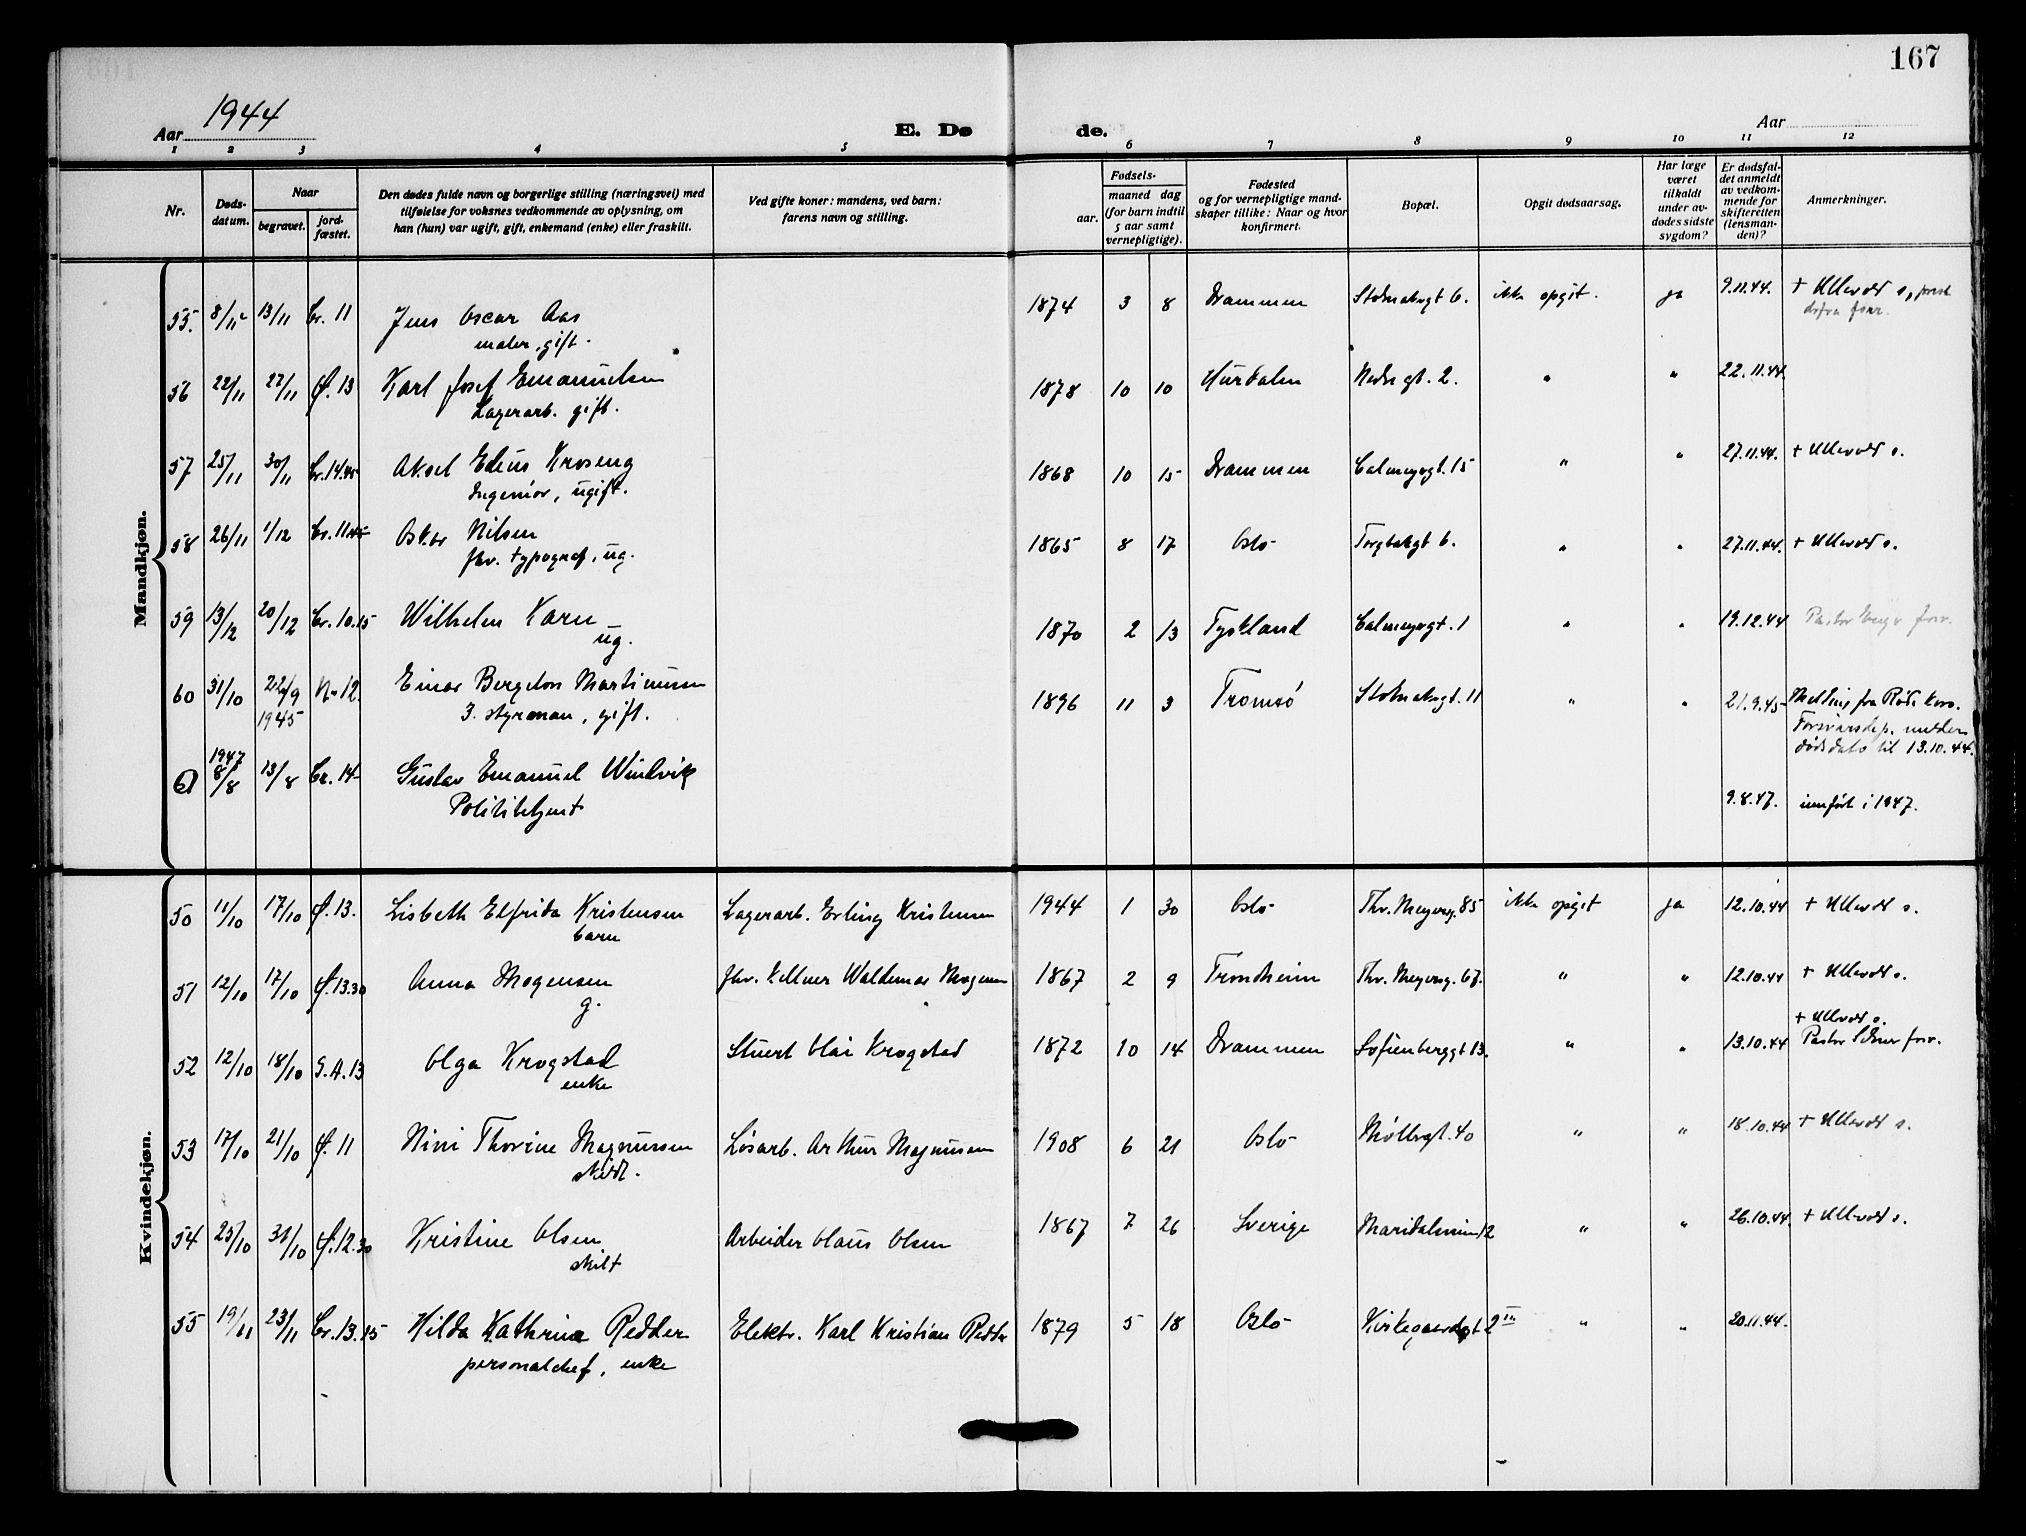 167
Aar 1944
E. Dø de.
Aar
1 2 3 4 5 6 7 8 9 10 11 12
Nr.
Døds-
datum.
Naar
begravet.
jord-
fæstet.
Den dødes fulde navn og borgerlige stilling (næringsvei) med
tilføielse for voksnes vedkommende av oplysning, om
han (hun) var ugift, gift, enkemand (enke) eller fraskilt.
Ved gifte koner: mandens, ved barn:
farens navn og stilling.
Fødsels-
aar.
maaned dag
(for barn indtil
5 aar samt
vernepligtige).
Fødested
og for vernepligtige mand-
skaper tillike: Naar og hvor
konfirmert.
Bopæl.
Opgit dødsaarsag.
Har læge
været
tilkaldt
under av-
dødes sidste
sygdom?
Er dødsfal-
det anmeldt
av vedkom-
mende for
skifteretten
(lensman-
den)?
Anmerkninger.
Mandkjøn.
55. 8/11 13/11 Cr. 11 Jens Oscar Aas 1874 3 8 Drammen Stolmakrgt 6. ikke opgit. ja 9.11.44. + Ullevål s.
maler, gift.
56 22/11 27/11 Ø. 13 Karl Josef Emanuelsen 1878 10 10 Hurdalen Nedregt. 2. " " 22.11.44.
Lagerarb. gift.
57 25/11 30/11 Cr. 14.45 Aksel Edius Kroseng 1868 10 15 Drammen Calmeyrgt. 15 " " 27.11.44. + Ullevål s.
Ingeniør, ugift.
58 26/11 1/12 Cr. 11.45 Oskar Nilsen 1865 8 17 Oslo Torgbakgt 6. " " 27.11.44. + Ullevål s.
fhv. typograf, ug.
59 13/12 20/12 Cr. 10.15 Wilhelm Karn 1870 2 13 Tyskland Calmeyrgt. 1 " " 19.12.44 Pastor forr.
ug.
60 31/10 22/9 N. 12. Einar Bergeton Martinussen 1896 11 3 Tromsø Stolmakrgt. 11 " " 21.9.45 Melding fra Røde Kors.
1945 3. styrman, gift. Forsvarsdep. melder
dødsdato til 13.10.44.
1947
61 8/8 13/8 Cr. 14 Gustav Emanuel Windvik
Politibetjent 9.8.47. innført i 1947.
Kvindekjøn.
50 11/10 17/10 Ø. 13. Lisbeth Elfrida Kristensen Lagerarb. Erling Kristensen 1944 1 30 Oslo Thv. Meyersg. 85 ikke opgit ja 12.10.44 + Ullevål s.
barn
51 12/10 17/10 Ø. 13.30 Anna Mogensen fhv. Kellner Waldemar Mogensen 1867 2 9 Trondheim Thv. Meyersg. 67. " " 12.10.44 + Ullevål s.
g.
+ Ullevål s.
52 12/10 18/10 G.A. 13 Olga Krogstad Stuert Olai Krogstad 1872 10 14 Drammen Sofienberggt 13. " " 13.10.44 Pastor forr.
enke
53 17/10 21/10 Ø. 11 Nini Thorine Magnussen Løsarb. Arthur Magnussen 1908 6 21 Oslo Møllergt. 40 " " 18.10.44 + Ullevål s.
skilt.
54 25/10 31/10 Ø. 12.30 Kristine Olsen Arbeider Olaus Olsen 1867 7 26 Sverige Maridalsveien 12 " " 26.10.44. + Ullevål s.
skilt
55 19/11 23/11 Cr. 13.15 Hilda Kathrine Redder Elektr. Karl Kristian Redder 1879 5 18 Oslo Kirkegaardsgt 2 III " " 20.11.44.
personalchef, enke